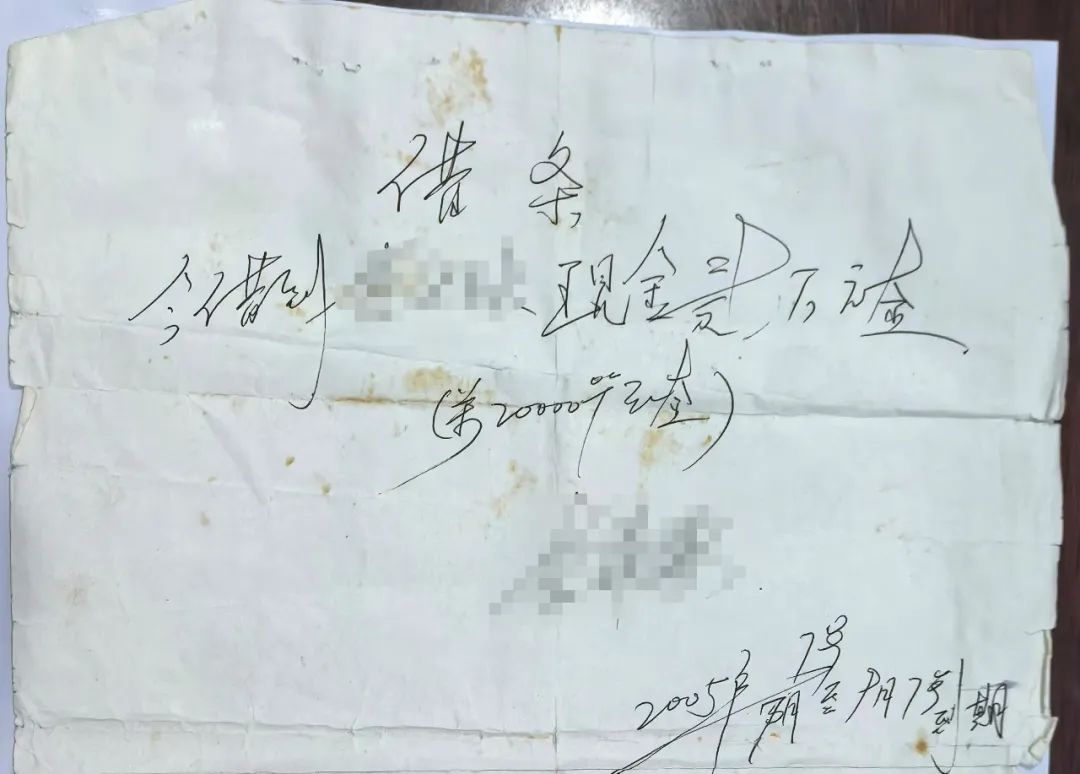 借条
今借到 现金贰万元金
(美20000元金)
2005年 月7号至9月7号到期